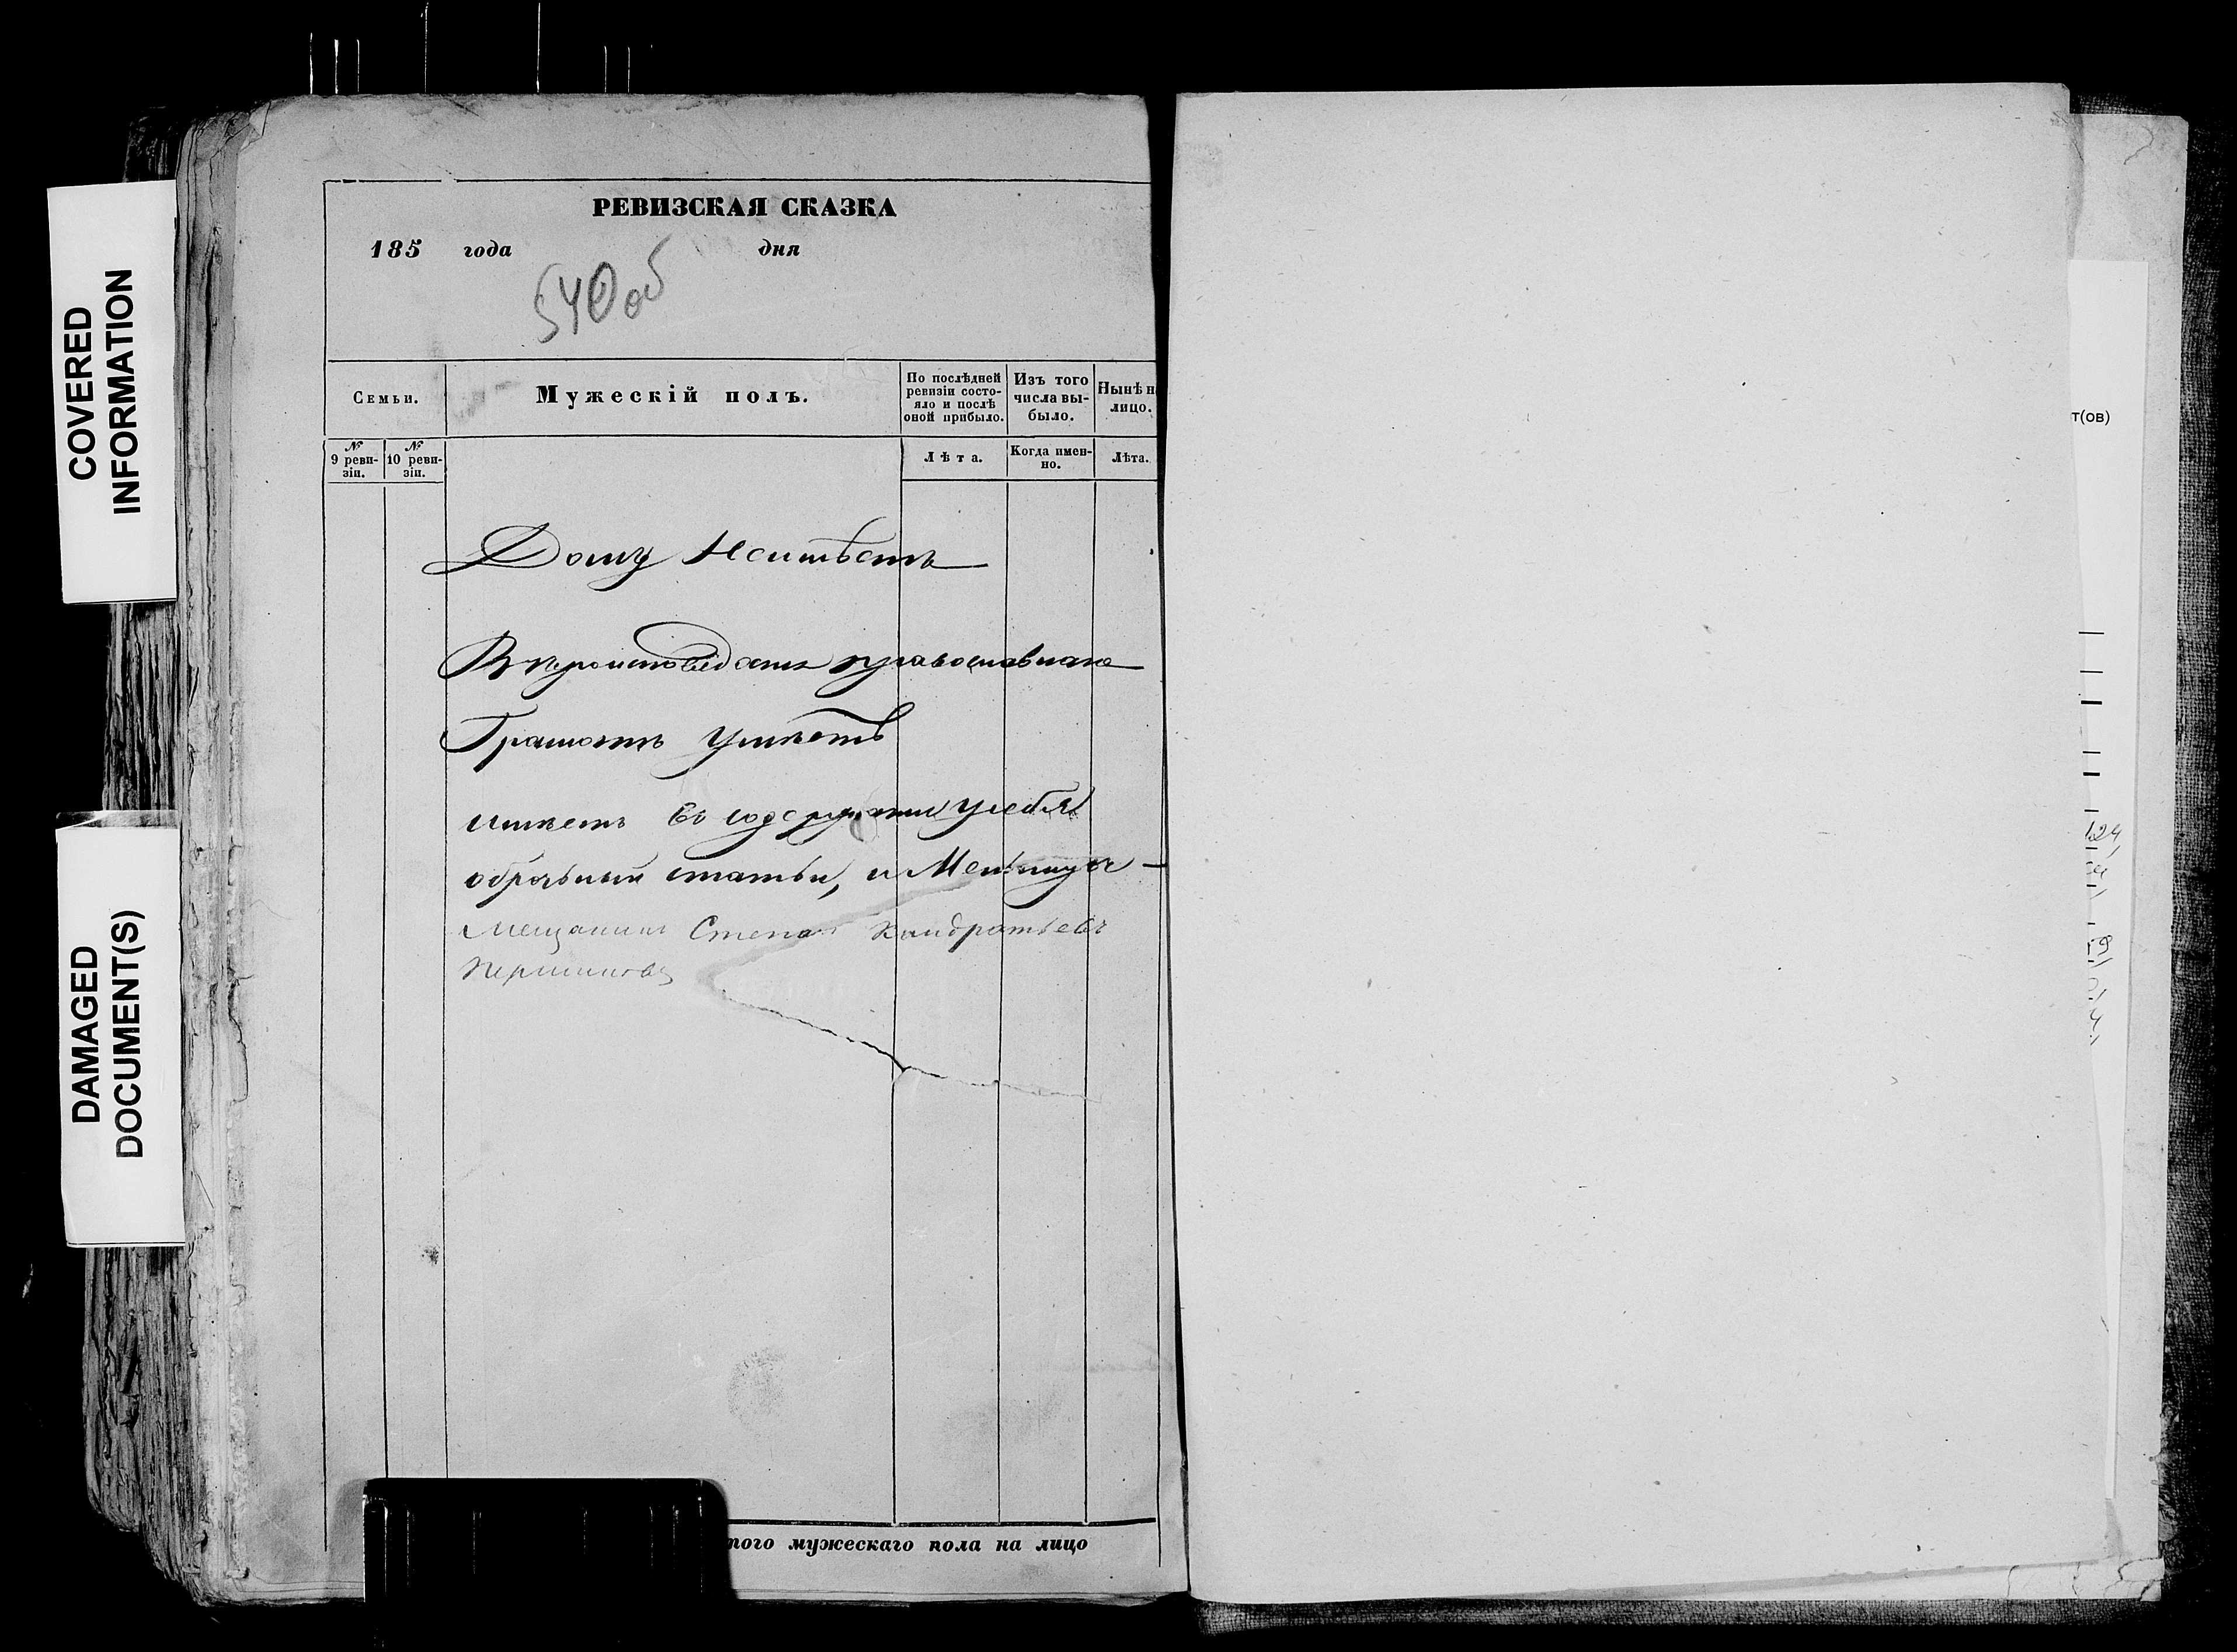 COVERED
INFORMATION
DAMAGED
DOCUMENT(S)
РЕВИЗСКАЯ СКАЗКА
185 года дня
540об
Семьи.
Мужескій полъ.
По послѣдней ревизіи состо-
яло и послѣ
оной прибыло.
Изъ того
числа вы-
было.
Нынѣ н
лицо.
№
9 реви-
зіи.
№
10 реви-
зіи.
Лѣта.
Когда имен-
но.
Лѣта.
Дому Неимѣетъ
православнаго
Грамотъ Умѣетъ
имѣетъ въ содержании у себя
оброчьныи статьи, и Мельницы
Мещанинъ Степанъ Кондратьевъ
того мужескаго пола на лицо
т(ов)